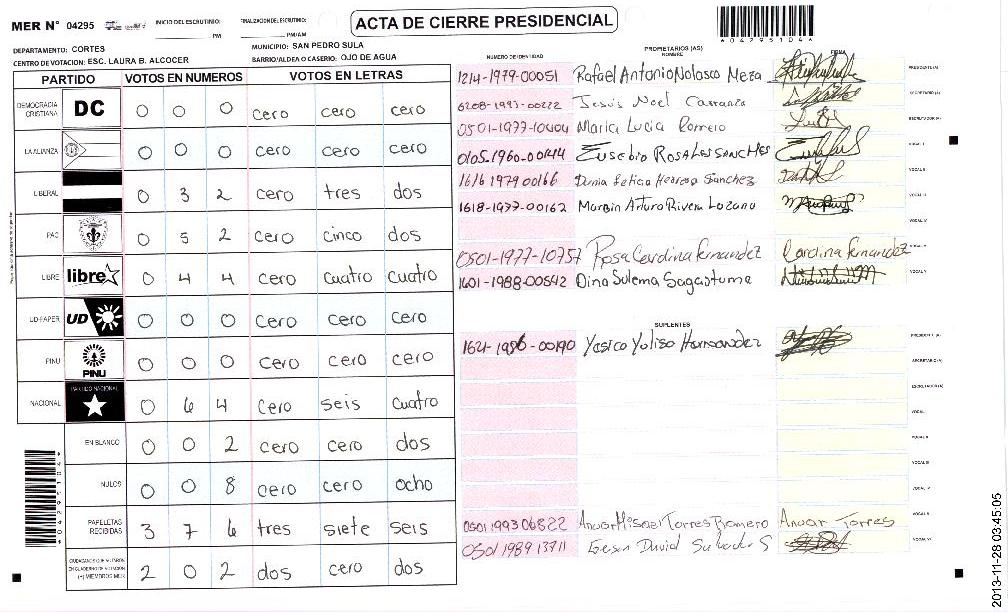 MER N° 04295
INICIO DEL ESCRUTINIO: PM
FINALIZACION DEL ESCRUTINIO: PM/AM
ACTA DE CIERRE PRESIDENCIAL
*04295104*
DEPARTAMENTO: CORTES
MUNICIPIO: SAN PEDRO SULA
CENTRO DE VOTACION: ESC. LAURA B. ALCOCER
BARRIO/ALDEA O CASERIO: OJO DE AGUA
PARTIDO VOTOS EN NUMEROS VOTOS EN LETRAS
DEMOCRACIA CRISTIANA DC 0 0 0 cero cero cero
LA ALIANZA 0 0 0 cero cero cero
LIBERAL 0 3 2 cero tres dos
PAC 0 5 2 cero cinco dos
LIBRE libre 0 4 4 cero cuatro cuatro
UD-FAPER UD 0 0 0 cero cero cero
PINU PINU 0 0 0 cero cero cero
NACIONAL PARTIDO NACIONAL 0 6 4 cero seis cuatro
EN BLANCO 0 0 2 cero cero dos
NULOS 0 0 8 cero cero ocho
PAPELETAS RECIBIDAS 3 7 6 tres siete seis
CIUDADANOS QUE VOTARON EN CUADERNO DE VOTACION (+) MIEMBROS MER 2 0 2 dos cero dos
PROPIETARIOS (AS)
NUMERO DE IDENTIDAD NOMBRE FIRMA
1214-1979-00051 Rafael Antonio Nolasco Meza PRESIDENTE (A)
0208-1993-00222 Jesús Noel Carranza SECRETARIO (A)
0501-1977-10404 Maria Lucia Romero ESCRUTADOR (A)
0105-1960-00414 Eusebio ROSALES SANCHES VOCAL I
1616 1979 00166 Dunia Leticia Herrera Sanchez VOCAL II
1618-1977-00162 Marbin Arturo Rivera Lozano VOCAL III
VOCAL IV
0501-1977-10757 Rosa Carolina Fernandez Carolina Fernandez VOCAL V
1601-1988-00542 Dina Sulema Sagastume VOCAL VI
SUPLENTES
1621-1986-00190 Yesica Yolisa Hernandez PRESIDENTE (A)
SECRETARIO (A)
ESCRUTADOR (A)
VOCAL I
VOCAL II
VOCAL III
VOCAL IV
0501 1993 06822 Anuar Misael Torres Romero Anuar Torres VOCAL V
0501 1989 13711 Gerson David VOCAL VI
*04295104*
2013-11-28 03:45:05